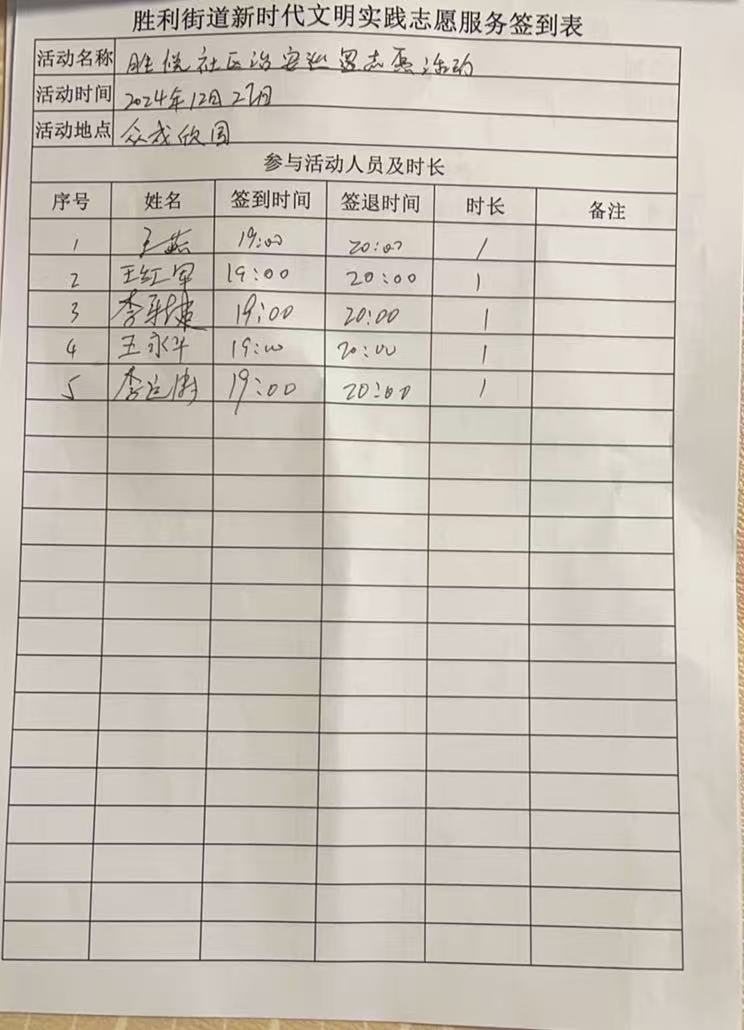 胜利街道新时代文明实践志愿服务签到表
活动名称 胜悦社区治安巡逻志愿活动
活动时间 2024年12月27日
活动地点 众成欣园
参与活动人员及时长
序号 姓名 签到时间 签退时间 时长 备注
1 王燕 19:00 20:00 1
2 王红军 19:00 20:00 1
3 李 19:00 20:00 1
4 王永华 19:00 20:00 1
5 李 19:00 20:00 1